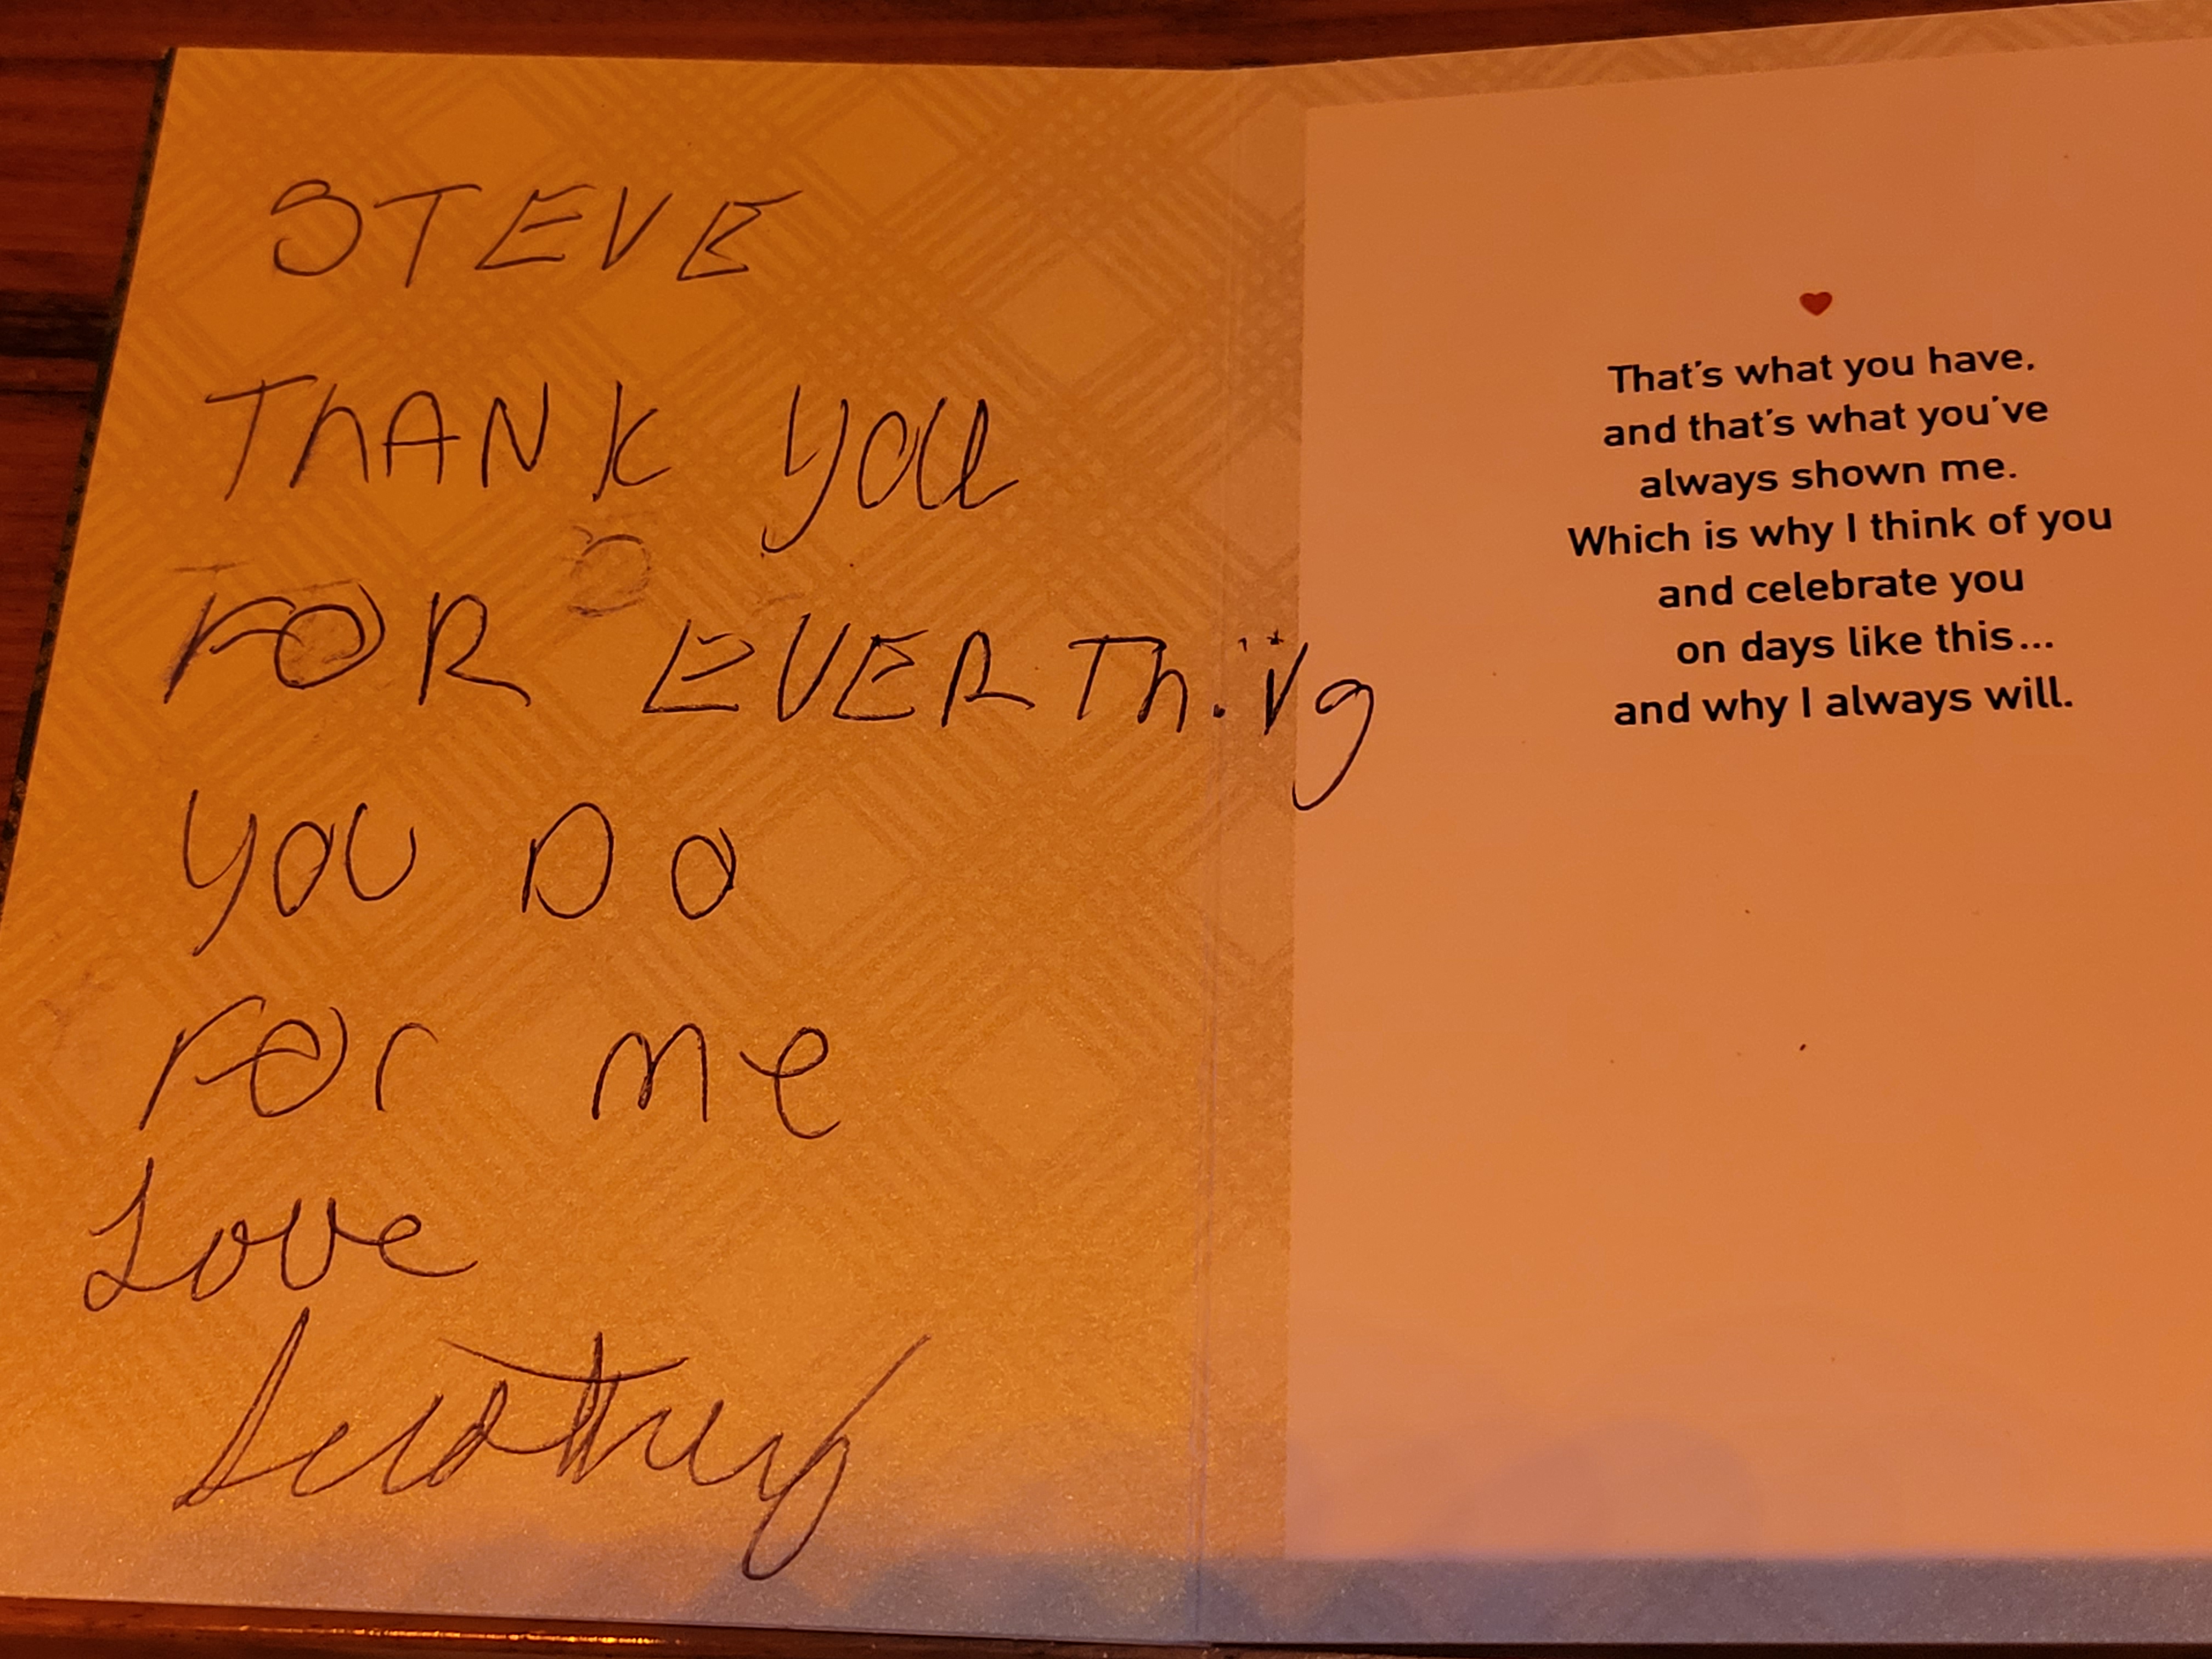 STEVE
THANK YOU
FOR EVERThing
YOU DO
For me
Love
That's what you have,
and that's what you've
always shown me.
Which is why I think of you
and celebrate you
on days like this...
and why I always will.